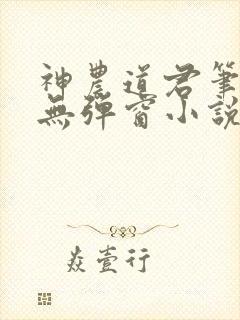 神農道君筆
無彈窗小說
焱壹行